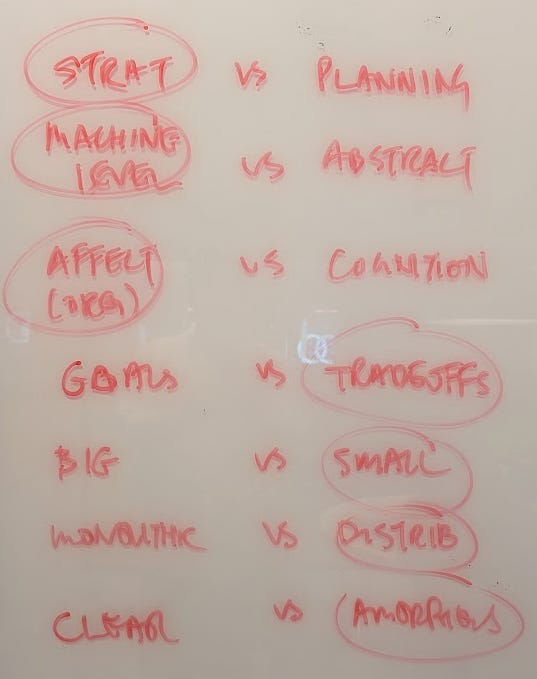 STRAT VS PLANNING
MACHINE
LEVEL VS ABSTRACT
AFFECT VS COGNITION
(ORG)
GOALS VS TRADEOFFS
BIG VS SMALL
MONOLITHIC VS DISTRIB
CLEAR VS AMORPHOUS